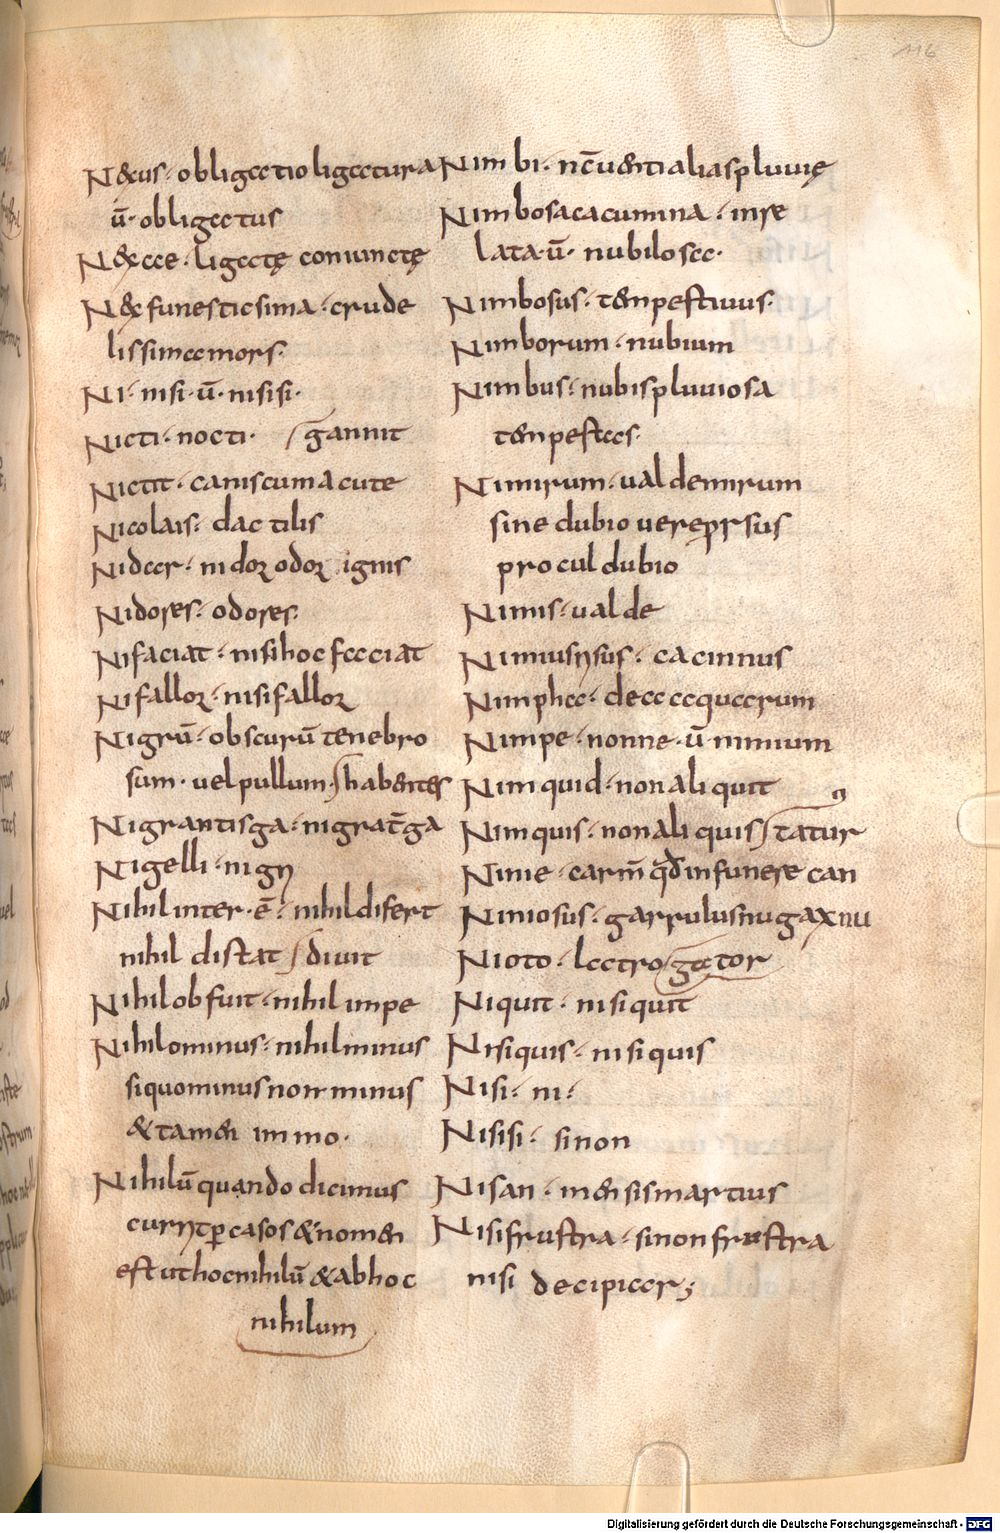 116
N&us· obligatio ligatura
ū· obligatus
N&ae· ligatę coniunctę
N&funestissima· crude
lissima mors·
Ni· nisi· ū· nisisi·
Nicti· nocti· gannit
Nictit· canis cum acute
Nicolais· dactilis
Nidar· nidor odor ignis
Nidores· odores·
Nifaciat· nisi hoc faciat
Nifallor· nisi fallor
Nigrū· obscurū tenebro
sum· uel pullum· habentes
Nigrantis ga· nigrat̄ ga
Nigelli· nigri
Nihil inter· ē· nihil difert
nihil distat diuit
Nihil obfuit· nihil impe
Nihilominus· nihil minus
siquominus non minus
& tamen immo·
Nihilū quando dicimus
currit ꝑ casos & nomen
est ut hoc nihilū & ab hoc
nihilum
Nimbi· nc̄ uenti alias pluuię
Nimbosa cacumina· inre
lata· ū· nubilosa·
Nimbosus· tempestiuus·
Nimborum· nubium
Nimbus· nubis pluuiosa
tempestas·
Nimirum· ualde mirum
sine dubio uere prsus
procul dubio
Nimis· ualde
Nimius risus· cacinnus
Nimphae· deae aquarum
Nimpe· nonne· ū nimium
Nimquid· non aliquit
Nimquis· non aliquis tatur
Ninie· carm̄ qd̄ in funere can
Niniosus· garrulus nugax nu
Nioto· lectro gator
Niquit· nisi quit
Nisiquis· nisi quis
Nisi· ni·
Nisisi· sinon
Nisan· mensis martius
Nisifrustra· sinon frustra
nisi decipiar;
Digitalisierung gefördert durch die Deutsche Forschungsgemeinschaft - DFG